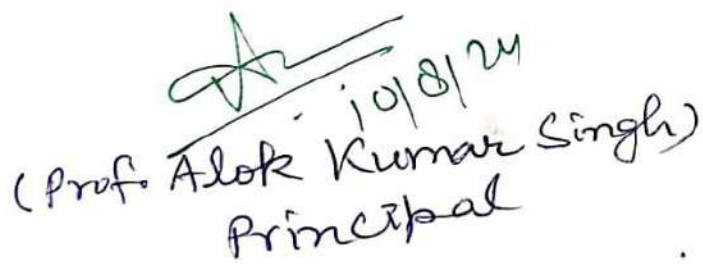 10/8/24
(Prof. Alok Kumar Singh)
Principal